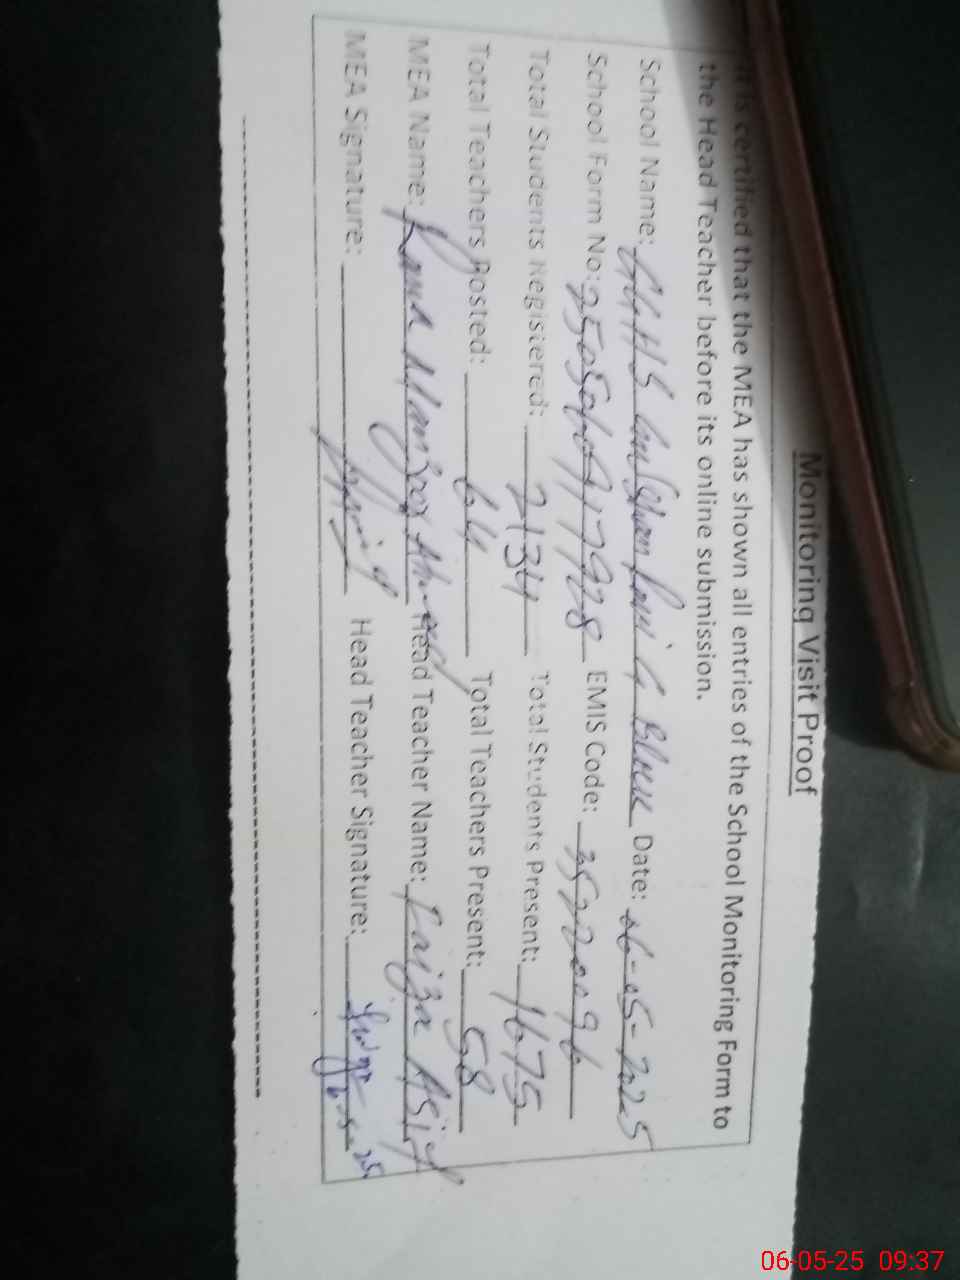 Monitoring Visit Proof
It is certified that the MEA has shown all entries of the School Monitoring Form to
the Head Teacher before its online submission.
School Name: GGHS Block Date: 06-05-2025
School Form No: EMIS Code: 35220096
Total Students Registered: 2134 Total Students Present: 1675
Total Teachers Posted: 64 Total Teachers Present: 58
MEA Name: Rana Ahmed Head Teacher Name: Faiza Asif
MEA Signature: Head Teacher Signature:
6-5-25
06-05-25 09:37